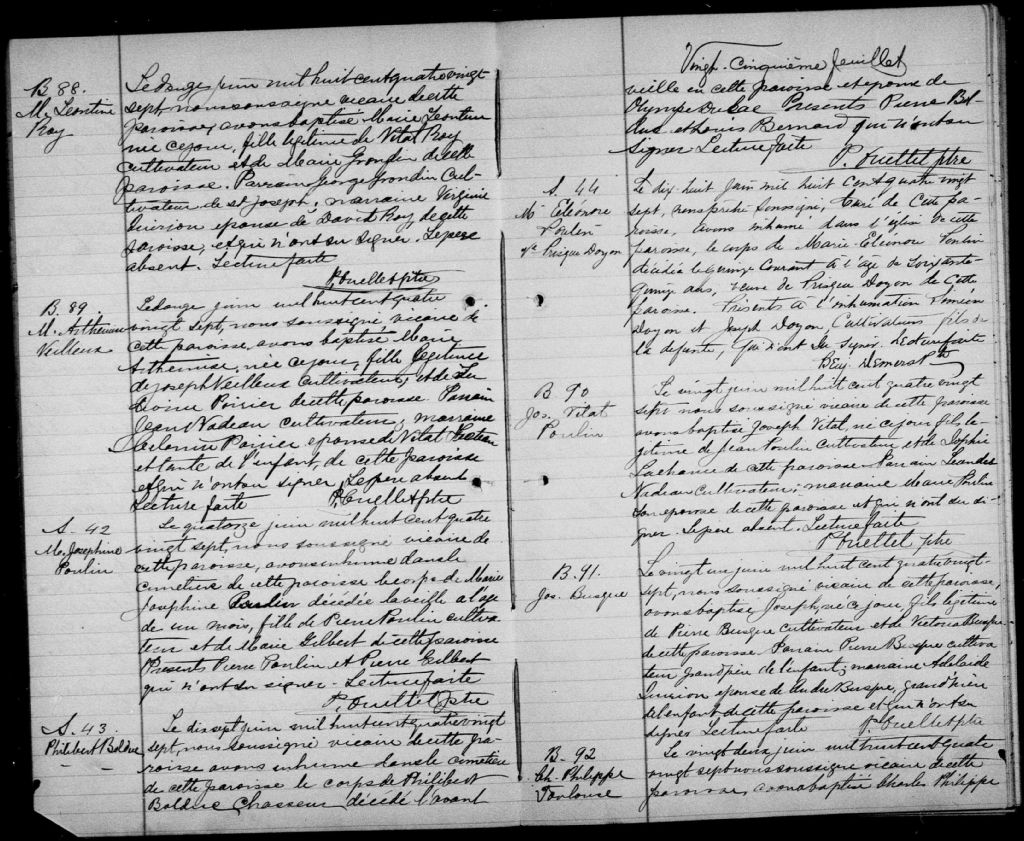 B 88.
M. Leontine
Roy
Le onze juin mil huit cent quatre vingt
sept, nous soussigné vicaire de cette
paroisse, avons baptisé Marie Leontine
née ce jour, fille legitime de Vital Roy
cultivateur et de Marie Grondin de cette
paroisse. Parrain George Grondin Cul-
tivateur de St Joseph, marraine Virginie
epouse de David Roy de cette
paroisse, et qui n'ont su signer. Le pere
absent. Lecture faite
P. Ouellet ptre
B. 89
M. Arthemise
Veilleux
Le onze juin mil huit cent quatre
vingt sept, nous soussigné vicaire de
cette paroisse, avons baptisé Marie
Arthemise, née ce jour, fille legitime
de Joseph Veilleux cultivateur, et de
Poirier de cette paroisse Parrain
Jean Nadeau cultivateur, marraine
Poirier epouse de Vital
et tante de l'enfant, de cette paroisse
et qui n'ont su signer, Le pere absent
Lecture faite P. Ouellet ptre
S. 42
M. Josephine
Poulin
Le quatorze juin mil huit cent quatre
vingt sept, nous soussigné vicaire de
cette paroisse, avons inhumé dans le
cimetiere de cette paroisse le corps de Marie
Josephine Poulin décédée la veille a l'age
de un mois, fille de Pierre Poulin cultiva-
teur et de Marie Gilbert de cette paroisse
Presents Pierre Poulin et Pierre Gilbert
qui n'ont su signer - Lecture faite
P. Ouellet ptre
S. 43.
Philibert Bolduc
Le dix sept juin mil huit cent quatre vingt
sept, nous soussigné vicaire de cette pa-
roisse avons inhumé dans le cimetiere
de cette paroisse le corps de Philibert
Bolduc Chasseur décédé l'avant
Vingt-Cinquième feuillet
veille en cette paroisse et epoux de
Olympe Dulac Presents Pierre Bol-
duc et Louis Bernard qui n'ont su
signer Lecture faite
P. Ouellet ptre
S. 44
M Eléonore
Poulin
Prisque Doyon
Le dix-huit juin mil huit cent quatre vingt
sept, nous prêtre soussigné, Curé de Cette pa-
roisse, avons inhumé dans l'église de cette
paroisse, le corps de Marie-Eléonore Poulin
décédée le quinze Courant à l'âge de soixante-
quinze ans, veuve de Prisque Doyon de Cette
paroisse. Présents à l'inhumation
Doyon et Joseph Doyon, Cultivateurs, fils de
la défunte, qui n'ont su signer. Lecture faite
Benj. Demers Ptre
B 90
Jos. Vital
Poulin
Le vingt juin mil huit cent quatre vingt
sept nous soussigné vicaire de cette paroisse
avons baptisé Joseph Vital, né ce jour fils le-
gitime de Jean Poulin cultivateur et de Sophie
Lachance de cette paroisse. Parrain Leandre
Nadeau cultivateur; marraine Marie Poulin
son epouse de cette paroisse et qui n'ont su si-
gner. Le pere absent. Lecture faite
P Ouellet ptre
B-91.
Jos. Busque
Le vingt un juin mil huit cent quatre vingt-
sept, nous soussigné vicaire de cette paroisse,
avons baptisé Joseph, né ce jour fils legitime
de Pierre Busque cultivateur et de Victoria Busque
de cette paroisse Parrain Pierre Busque cultiva
teur grand père de l'enfant; marraine Adelaide
epouse de André Busque, grand'mère
de l'enfant de cette paroisse et qui n'ont su
signer Lecture faite P. Ouellet ptre
B-92
Ch Philippe
Toulouse
Le vingt deux juin mil huit cent quatre
vingt sept nous soussigné vicaire de cette
paroisse, avons baptisé Charles Philippe